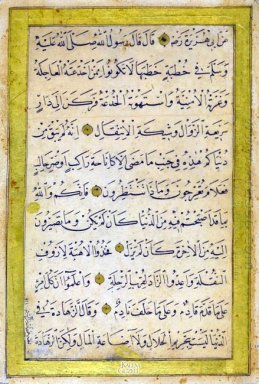 عن أبي هريرة رضـ قال قال رسول الله صلى الله عليه
وسلم في خطبة خطبها لا تكونوا ممن خدعته العاجلة
وغرته الأمنية واستهوته الخدعة فركن إلى دار
سريعة الزوال وشيكة الانتقال إنه لم يبق من
دنياكم هذه في جنب ما مضى إلا كإناخة راكب أو صر حالب
فعلام تعرجون وما ذا تنتظرون فكأنكم والله
بما قد أصبحتم فيه من الدنيا كأن لم يكن وما تصيرون
إليه من الآخرة كأن لم يزل فخذوا الأهبة لأزوف
النقلة وأعدوا الزاد لقرب الرحلة واعلموا أن كل امرئ
على ما قدم قادم وعلى ما خلف نادم وقال الزهادة في
الدنيا ليست بتحريم الحلال ولا إضاعة المال ولكن الزهادة